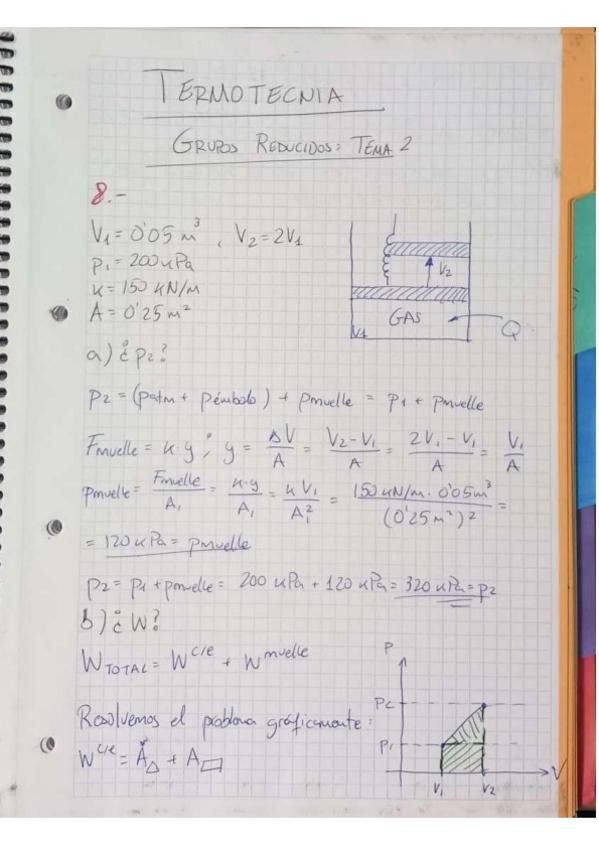 TERMOTECNIA
GRUPOS REDUCIDOS: TEMA 2
8.-
V₁ = 0'05 m³ , V₂ = 2V₁
p₁ = 200 kPa
k = 150 kN/m
A = 0'25 m²
V₂
GAS
V₁
Q
a) ¿p₂?
p₂ = (patm + pémbolo) + pmuelle = p₁ + pmuelle
Fmuelle = k·y ; y = ΔV/A = (V₂-V₁)/A = (2V₁-V₁)/A = V₁/A
pmuelle = Fmuelle/A₁ = k·y/A₁ = kV₁/A₁² = 150 kN/m · 0'05 m³/(0'25 m²)² =
= 120 kPa = pmuelle
p₂ = p₁ + pmuelle = 200 kPa + 120 kPa = 320 kPa = p₂
b) ¿W?
W TOTAL = W^c/e + W^muelle
Resolvemos el problema gráficamente:
W^c/e = A△ + A▭
P
P₂
P₁
V₁
V₂
V